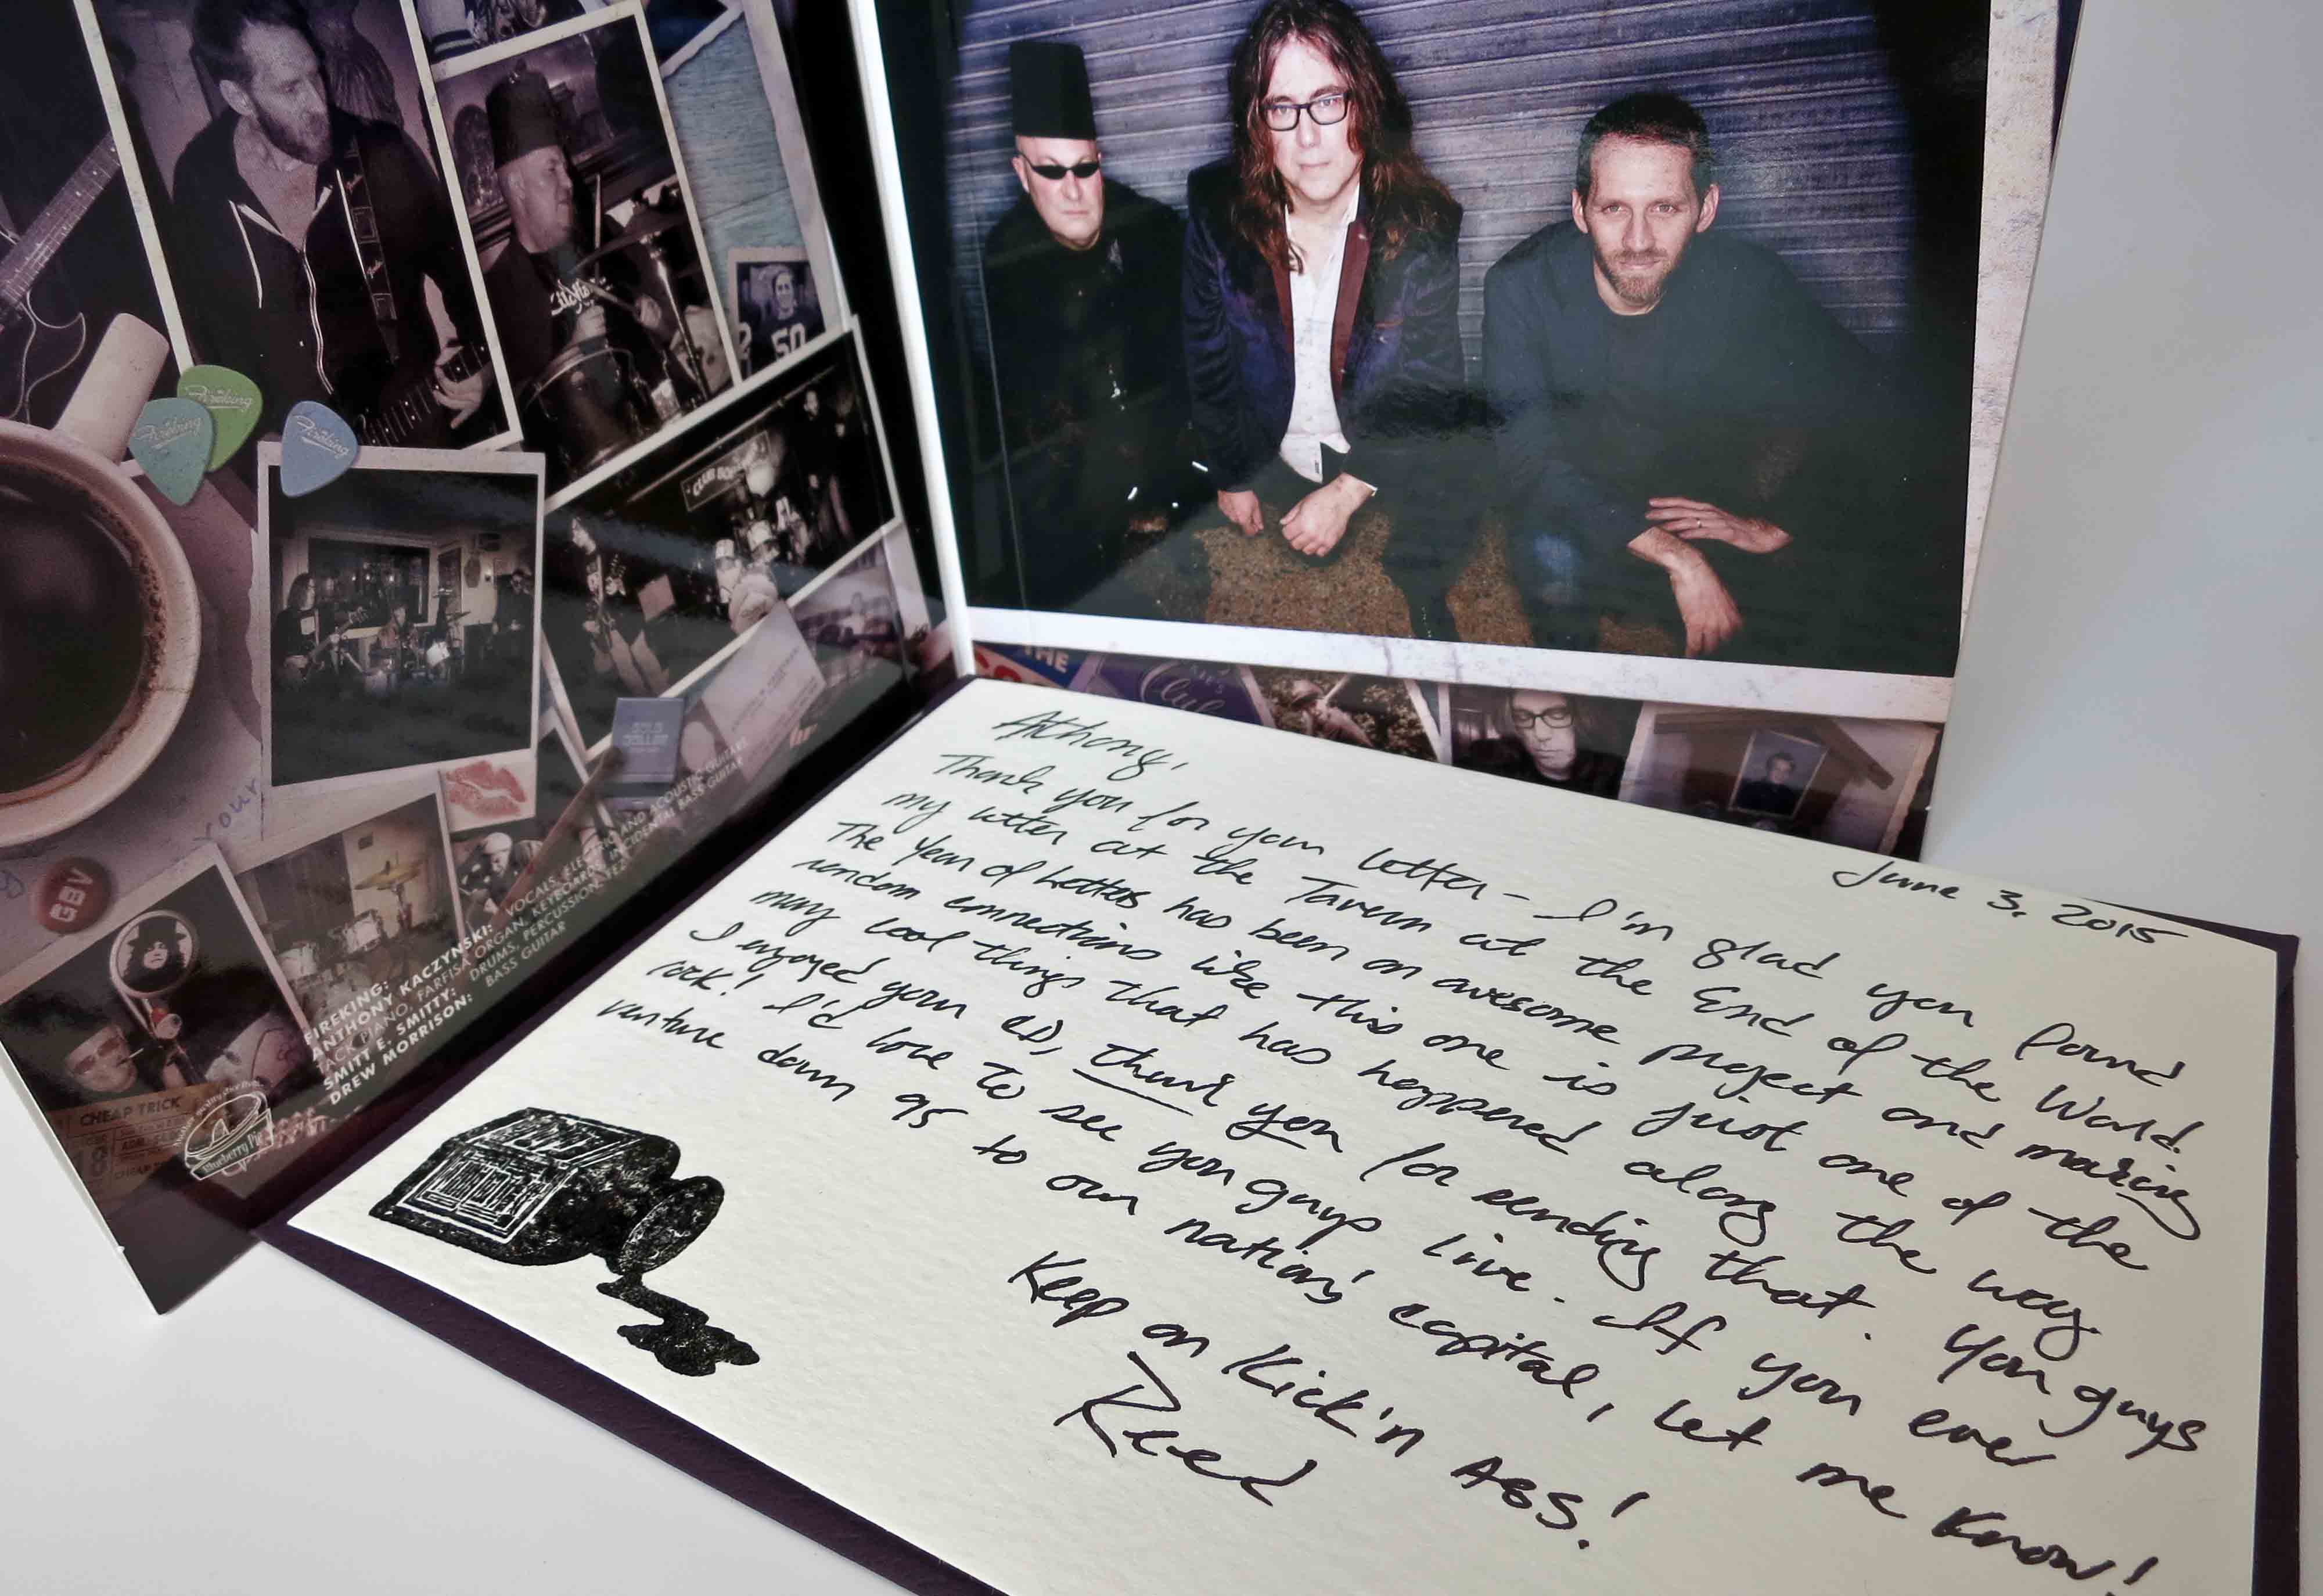 Fireking
Fireking
Fireking
50
CLUB BO
THE
Club
GOLD
DOLLAR
your
GBV
FIREKING:
ANTHONY KACZYNSKI: VOCALS, ELECTRIC AND ACOUSTIC GUITARS,
TACK PIANO, FARFISA ORGAN, KEYBOARDS, INCIDENTAL BASS GUITAR
SMITT E. SMITTY: DRUMS, PERCUSSION,
DREW MORRISON: BASS GUITAR
CHEAP TRICK
Blueberry Pie
June 3, 2015
Anthony,
Thank you for your letter - I'm glad you found
my letter at the Tavern at the End of the World.
The Year of Letters has been an awesome project and making
random connections like this one is just one of the
many cool things that has happened along the way.
I enjoyed your CD, thank you for sending that. You guys
rock! I'd love to see you guys live. If you ever
venture down 95 to our nation's capital, let me know!
Keep on Kick'n ASS!
Reed